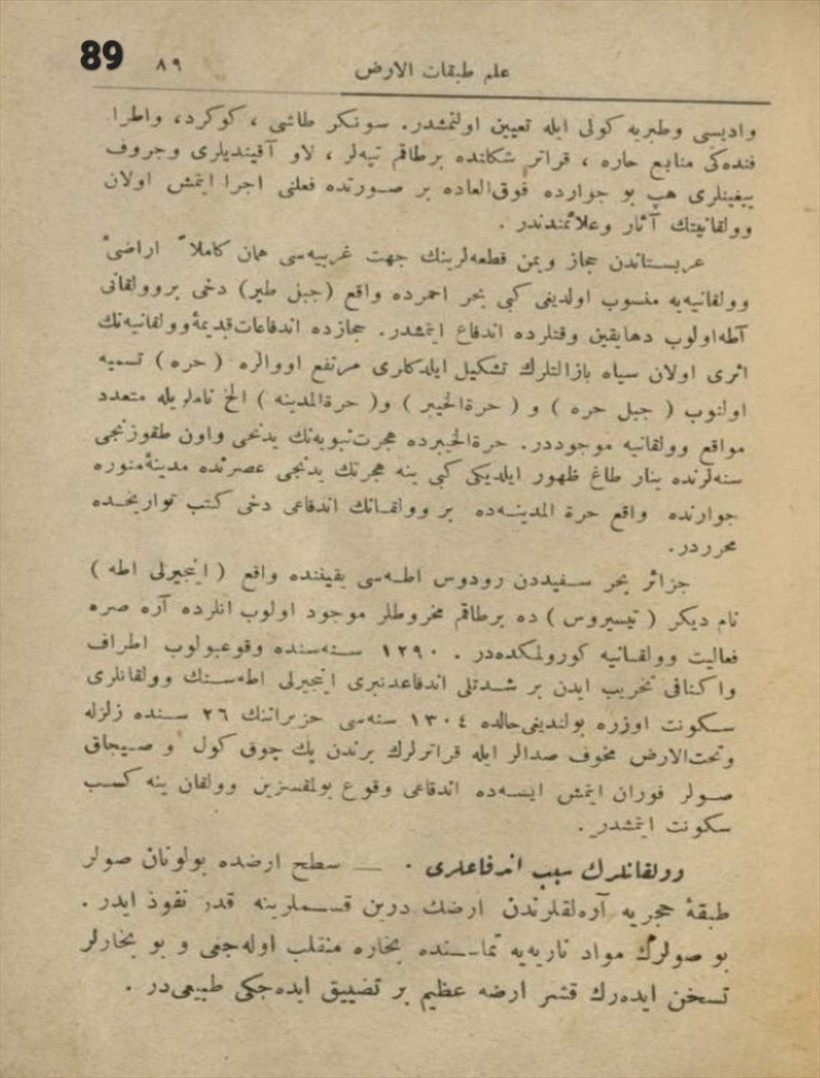 89
علم طبقات الارض ٨٩
واديسى وطبريه كولى ايله تعيين اولنمشدر. سونكر طاشى ، كوكرد، واطرا
فنده‌كى منابع حاره ، قراتر شكلنده برطاقم تپه‌لر ، لاو آقينديلرى وجروف
ييغينلرى هپ بو جوارده فوق‌العاده بر صورتده فعلنى اجرا ايتمش اولان
وولقانيتك آثار وعلائمندندر .
عربستاندن حجاز ويمن قطعه‌لرينك جهت غربيه‌سى همان كاملاً اراضئ
وولقانيه‌يه منسوب اولديغى كبى بحر احمرده واقع (جبل طير) دخى بروولقانى
آطه‌اولوب دهايقين وقتلرده اندفاع ايتمشدر. حجازده اندفاعات‌قديمهٔ‌وولقانيه‌نك
اثرى اولان سياه بازالتلرك تشكيل ايلدكلرى مرتفع اووالره (حره) تسميه
اولنوب (جبل حره) و (حرةالخيبر) و(حرةالمدينه) الخ ناملريله متعدد
مواقع وولقانيه موجوددر. حرةالخيبرده هجرت‌نبويه‌نك يدنجى واون طقوزنجى
سنه‌لرنده ينار طاغ ظهور ايلديكى كبى ينه هجرتك يدنجى عصرنده مدينهٔ‌منوره
جوارنده واقع حرة المدينه‌ده بر وولقانك اندفاعى دخى كتب تواريخده
محرردر.
جزائر بحر سفيددن رودوس اطه‌سى يقيننده واقع (اينجيرلى اطه)
نام ديكر (نيسيروس) ده برطاقم مخروطلر موجود اولوب انلرده آره صره
فعاليت وولقانيه كورولمكده‌در . ١٢٩٠ سنه‌سنده وقوعبولوب اطراف
واكنافى تخريب ايدن بر شدتلى اندفاعدنبرى اينجيرلى اطه‌سنك وولقانلرى
سكونت اوزره بولنديغى‌حالده ١٣٠٤ سنه‌سى حزيراننك ٢٦ سنده زلزله
وتحت‌الارض مخوف صدالر ايله قراترلرك برندن پك چوق كول و صيجاق
صولر فوران ايتمش ايسه‌ده اندفاعى وقوع بولمقسزين وولقان ينه كسب
سكونت ايتمشدر.
وولقانلرك سبب اندفاعلرى . — سطح ارضده بولونان صولر
طبقهٔ حجريه آره‌لقلرندن ارضك درين قسملرينه قدر نفوذ ايدر .
بو صولرك مواد ناريه‌يه تماسنده بخاره منقلب اوله‌جغى و بو بخارلر
تسخن ايده‌رك قشر ارضه عظيم بر تضييق ايده‌جكى طبيعى‌در .